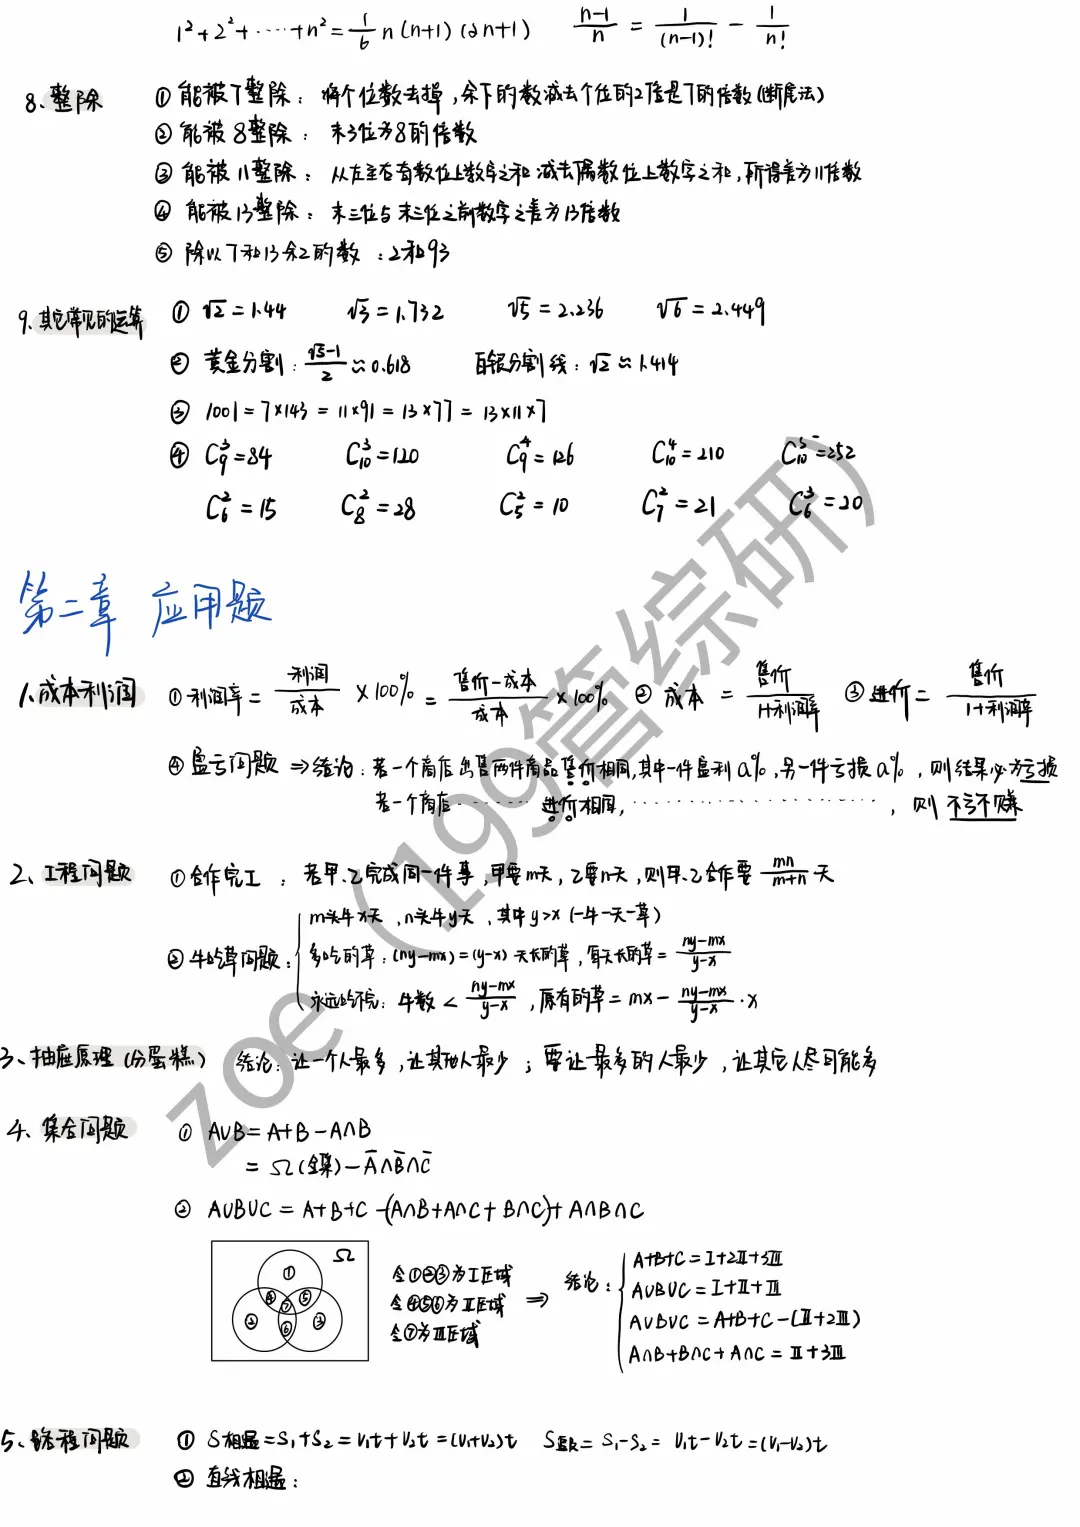 1²+2²+……+n²=1/6 n(n+1)(2n+1)    n-1/n = 1/(n-1)! - 1/n!
8、整除 ① 能被7整除：将个位数去掉，余下的数减去个位的2倍是7的倍数(断尾法)
② 能被8整除：末3位为8的倍数
③ 能被11整除：从左至右奇数位上数字之和减去偶数位上数字之和，所得差为11倍数
④ 能被13整除：末三位与末三位之前数字之差为13倍数
⑤ 除以7和13余2的数：2和93
9.其它常见的运算 ① √2=1.44    √3=1.732    √5=2.236    √6=2.449
② 黄金分割：(√5-1)/2≈0.618    白银分割线：√2≈1.414
③ 1001=7×143=11×91=13×77=13×11×7
④ C₉³=84    C₁₀³=120    C₉⁴=126    C₁₀⁴=210    C₁₀⁵=252
C₆²=15    C₈²=28    C₅²=10    C₇²=21    C₆³=20
第二章 应用题
1.成本利润 ①利润率=利润/成本×100%=售价-成本/成本×100% ②成本=售价/1+利润率 ③进价=售价/1+利润率
④盈亏问题⇒结论：若一个商店出售两件商品售价相同，其中一件盈利a%，另一件亏损a%，则结果必为亏损
若一个商店……进价相同，……………………，则不亏不赚
2、工程问题 ①合作完工：若甲、乙完成同一件事，甲要m天，乙要n天，则甲、乙合作要mn/m+n天
m头牛x天，n头牛y天，其中y>x(一牛一天一草)
②牛吃草问题：多吃的草：(ny-mx)=(y-x)天长的草，每天长的草=ny-mx/y-x
永远吃不完：牛数<ny-mx/y-x，原有的草=mx-ny-mx/y-x·x
3、抽屉原理(分蛋糕) 结论：让一个人最多，让其他人最少；要让最多的人最少，让其它人尽可能多
4、集合问题 ① A∪B=A+B-A∩B
=Ω(全集)-A̅∩B̅∩C̅
② A∪B∪C=A+B+C-(A∩B+A∩C+B∩C)+A∩B∩C
Ω
① ② ③ ④ ⑤ ⑥ ⑦
令①②③为Ⅰ区域
令④⑤⑥为Ⅱ区域 ⇒ 结论：
令⑦为Ⅲ区域
A+B+C=Ⅰ+2Ⅱ+3Ⅲ
A∪B∪C=Ⅰ+Ⅱ+Ⅲ
A∪B∪C=A+B+C-(Ⅱ+2Ⅲ)
A∩B+B∩C+A∩C=Ⅱ+3Ⅲ
5、路程问题 ① S相遇=S₁+S₂=V₁t+V₂t=(V₁+V₂)t    S追及=S₁-S₂=V₁t-V₂t=(V₁-V₂)t
② 直线相遇：
zoe（199管综研）